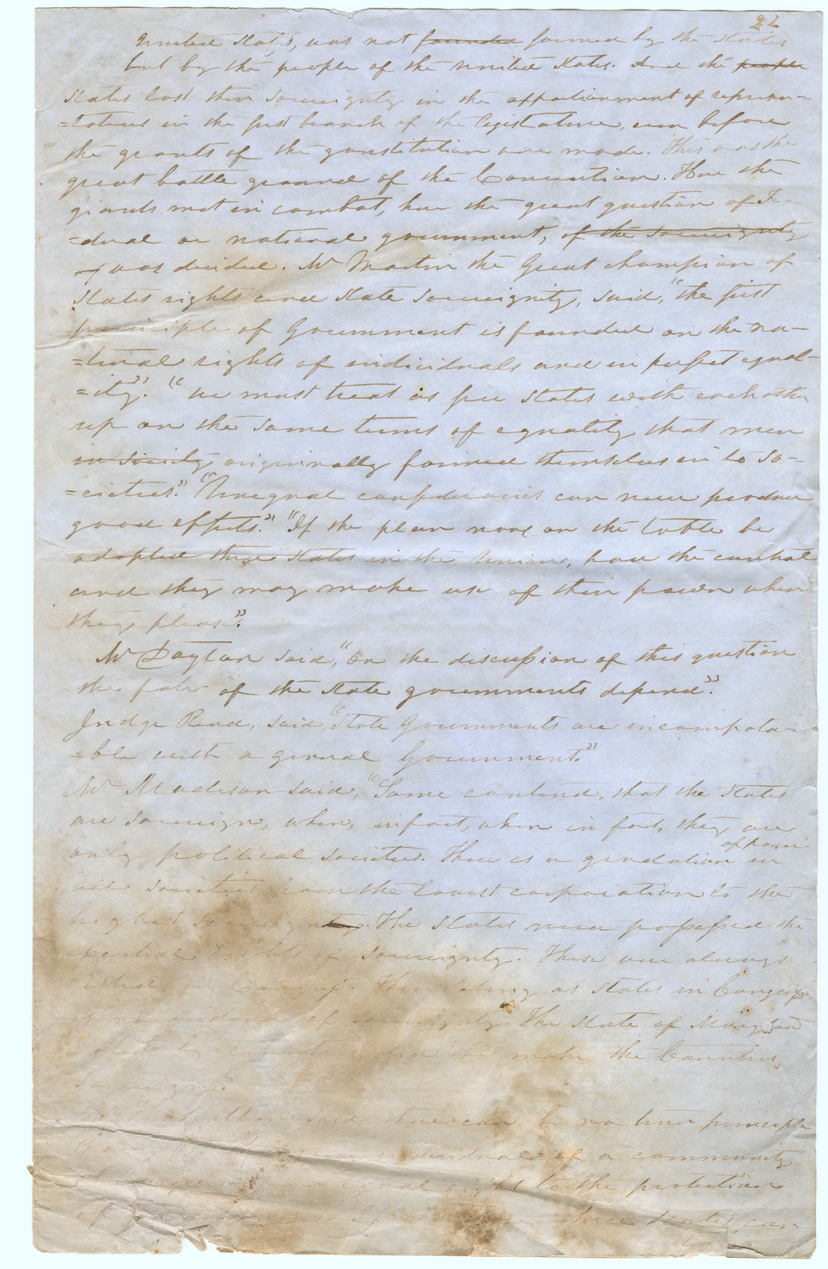 22
United States, was not founded formed by the States
but by the people of the United States. And the people
States lost their sovereignty in the apportionment of represen-
=tatives in the first branch of the legislature, even before
the grants of the constitution are made. This was the
great battle ground of the Convention. Here the
giants met in combat, here the great question of Fe-
=deral or national government, of the sovereignty
was decided. Mr Martin the Great champion of
States rights and State Sovereignty, said, "the first
principle of Government is founded on the na-
=tural rights of individuals and in perfect equal-
=ity". "We must treat as free States with each other
up on the same terms of equality that men
in society originally formed themselves in to so-
=cieties". "Unequal confederacies can never produce
good effects." "If the plan now on the table be
adopted three States in the Union, have the control
and they may make use of their power when
they please".
Mr Dayton said, "On the discussion of this question
the fate "of the State governments depend".
Judge Read, said "State Governments are incompata-
=ble with a general Government."
Mr Madison said, "Some contend, that the States
are sovereign, when, in fact, when in fact, they are
only political societies. There is a gradation of power in
all societies from the lowest corporation to the
highest sovereignty. The States never possessed the
essential rights of sovereignty. These were always
vested in Congress. Their voting as States in Congress
is no evidence of sovereignty. The State of Maryland
make the Counties
there can be no true principle
individual of a community
equal right to the protection
States can